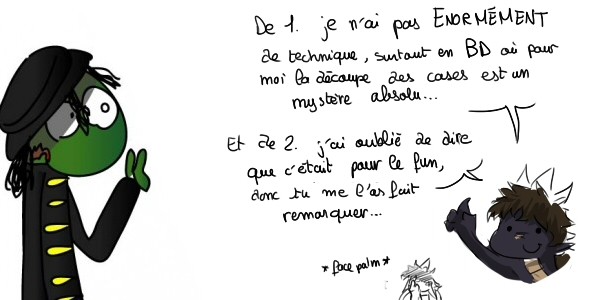 De 1. je n'ai pas ENORMÉMENT
de technique, surtout en BD où pour
moi la découpe des cases est un
mystère absolu...
Et de 2. j'ai oublié de dire
que c'était pour le fun,
donc tu me l'as fait
remarquer...
*face palm*